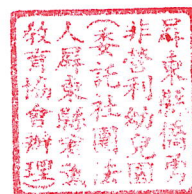 屏東縣僑勇
非營利幼兒園
（委託社團法
人屏東縣幼兒
教育協會辦理